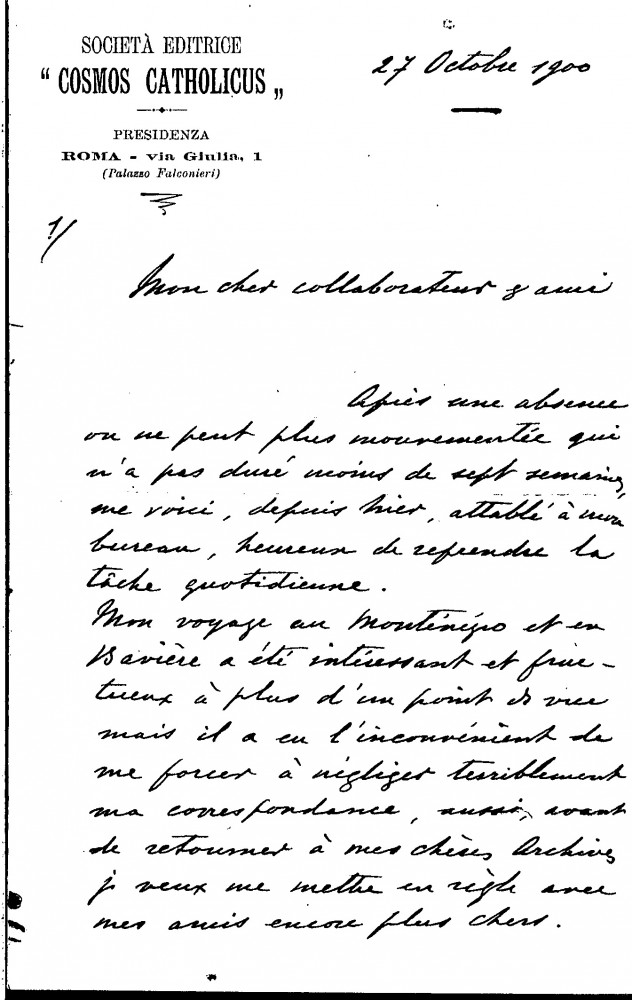 SOCIETÀ EDITRICE
“ COSMOS CATHOLICUS „
PRESIDENZA
ROMA - via Giulia, 1
(Palazzo Falconieri)
27 Octobre 1900
1/
Mon cher collaborateur & ami
Après une absence
on ne peut plus mouvementée qui
n'a pas duré moins de sept semaines,
me voici, depuis hier, attablé à mon
bureau, heureux de reprendre la
tâche quotidienne.
Mon voyage au Monténégro et en
Bavière a été intéressant et fruc-
tueux à plus d'un point de vue
mais il a eu l'inconvénient de
me forcer à négliger terriblement
ma correspondance, aussi, avant
de retourner à mes chères Archives
je veux me mettre en règle avec
mes amis encore plus chers.